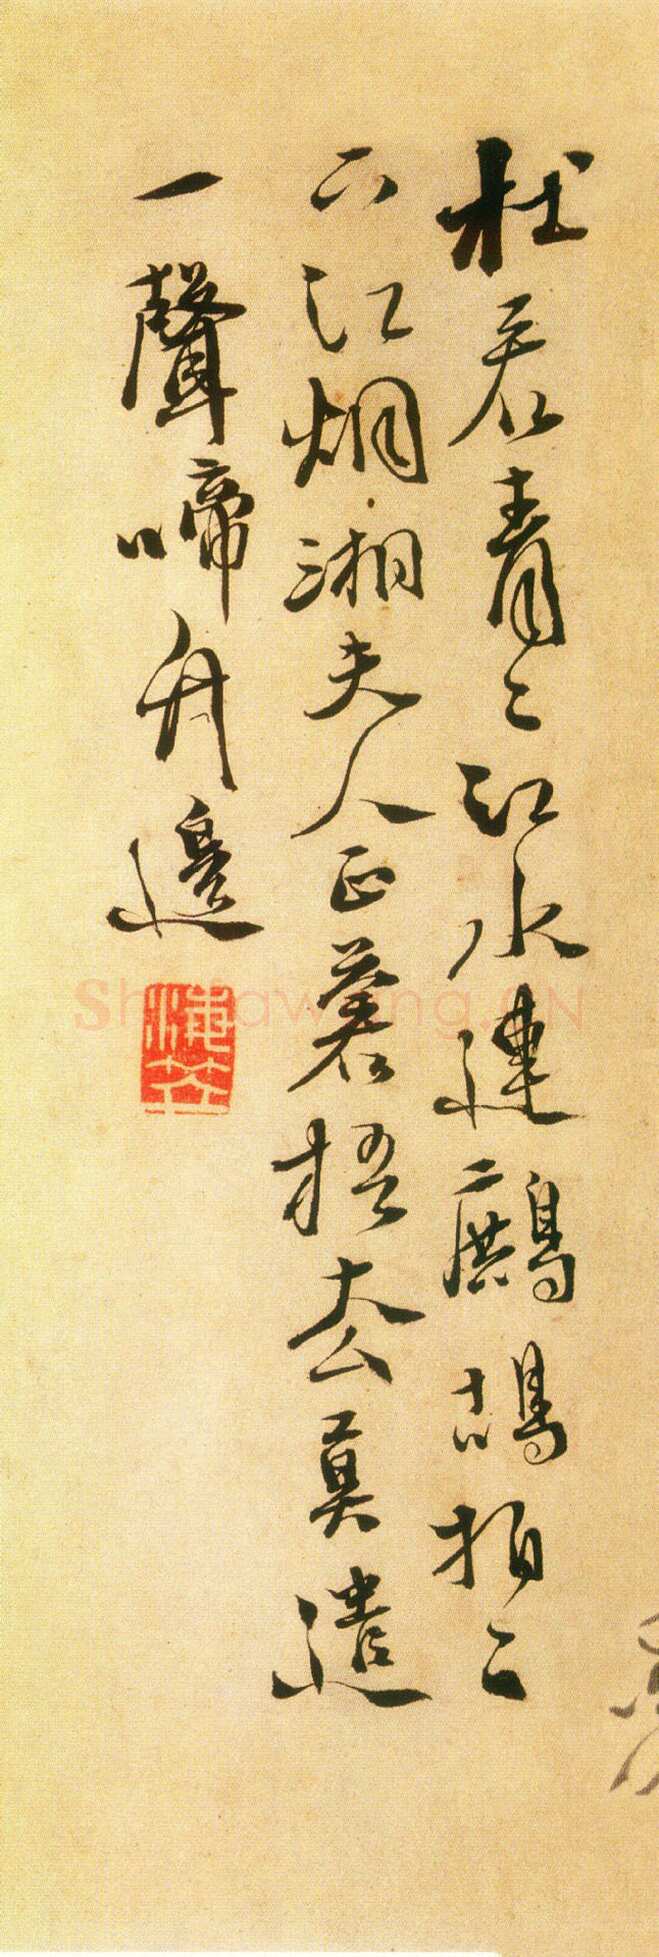 杜若青々江水連鷓鴣拍々
下江烟湘夫人正蒼梧去莫遣
一聲啼竹邊
Shufawang.CN